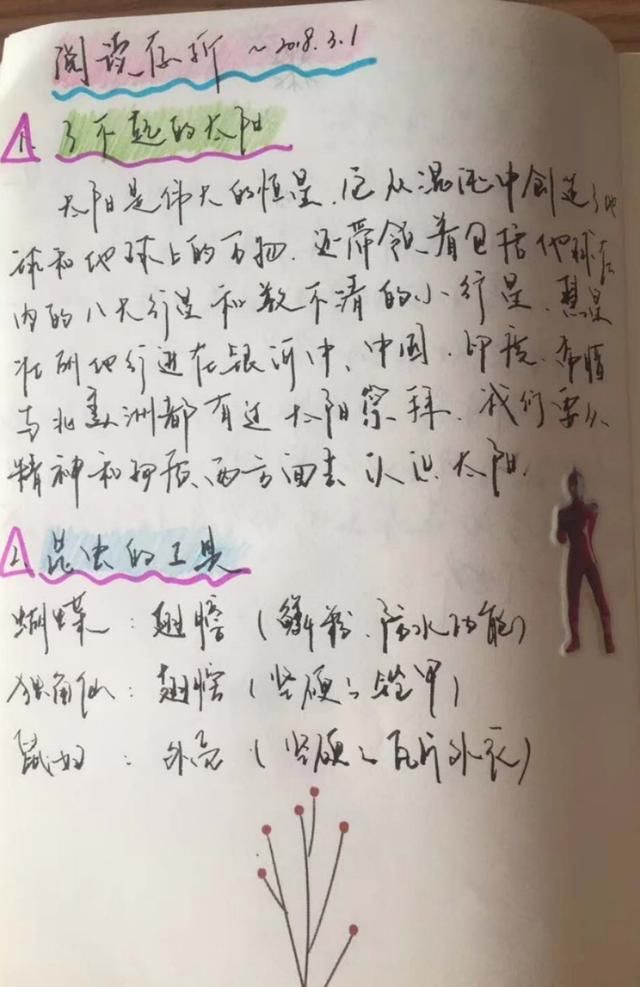 阅读存折 ~2018.3.1
1. 了不起的太阳
太阳是伟大的恒星,它从混沌中创造了地
球和地球上的万物,还带领着包括地球在
内的八大行星和数不清的小行星、彗星
壮阔地行进在银河中,中国、印度、希腊
与北美洲都有过太阳祭拜,我们要从
精神和物质两方面去认识太阳.
2. 昆虫的工具
蝴蝶:翅膀(鳞粉、防水功能)
独角仙:翅膀(坚硬之铠甲)
鼠妇:外壳(坚硬之瓦片外衣)